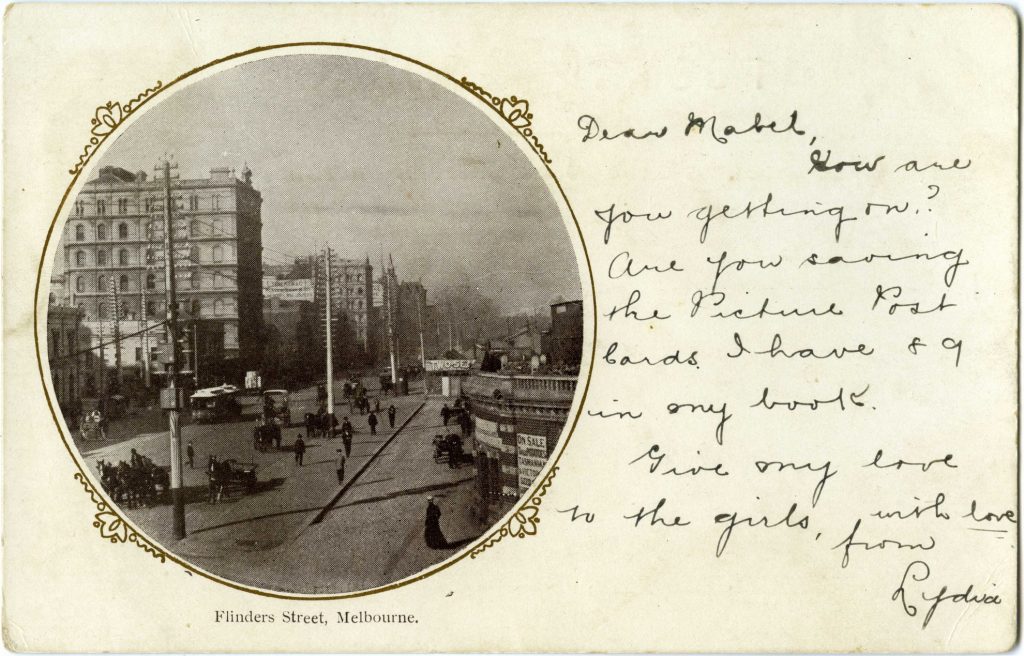 Dear Mabel,
How are
you getting on?
Are you saving
the Picture Post
Cards. I have 89
in my book.
Give my love
to the girls, with love
from
Lydia
ON SALE
TASMANIAN
Flinders Street, Melbourne.